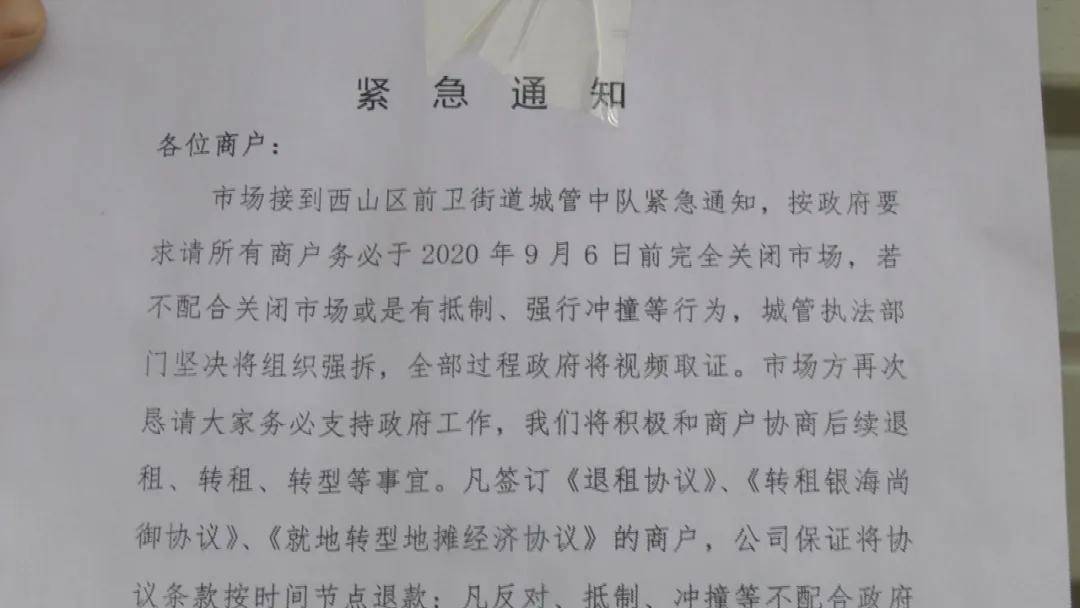 紧急通知
各位商户：
市场接到西山区前卫街道城管中队紧急通知，按政府要
求请所有商户务必于 2020 年 9 月 6 日前完全关闭市场，若
不配合关闭市场或是有抵制、强行冲撞等行为，城管执法部
门坚决将组织强拆，全部过程政府将视频取证。市场方再次
恳请大家务必支持政府工作，我们将积极和商户协商后续退
租、转租、转型等事宜。凡签订《退租协议》、《转租银海尚
御协议》、《就地转型地摊经济协议》的商户，公司保证将协
议条款按时间节点退款；凡反对、抵制、冲撞等不配合政府